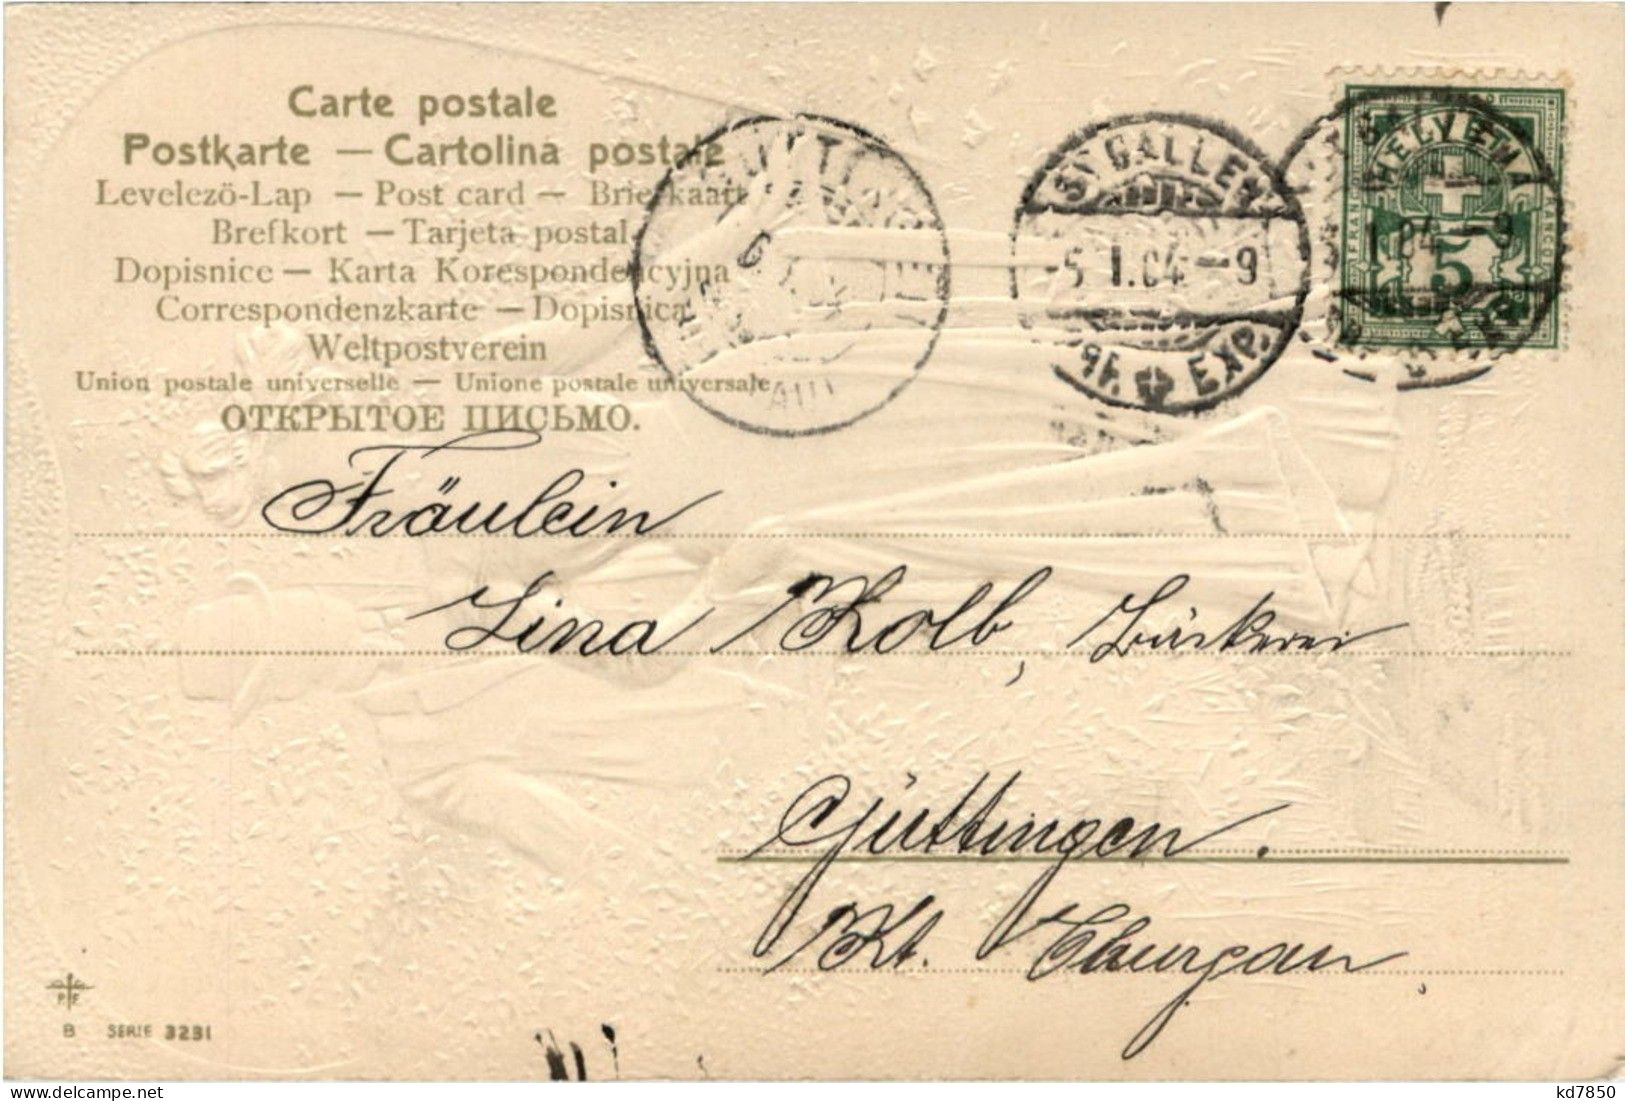 Carte postale
Postkarte — Cartolina postale
Levelezö-Lap — Post card — Briefkaart
Brefkort — Tarjeta postal
Dopisnice — Karta Korespondencyjna
Correspondenzkarte — Dopisnica
Weltpostverein
Union postale universelle — Unione postale universale
ОТКРЫТОЕ ПИСЬМО.
ST. GALLEN
-5.I.04-9
EXP.
HELVETIA
FRANCO
5
I.04-9
Fräulein
Lina Kolb, Bäckerei
Güttingen.
Kt. Thurgau
B SERIE 3231
delcampe.net
kd7850